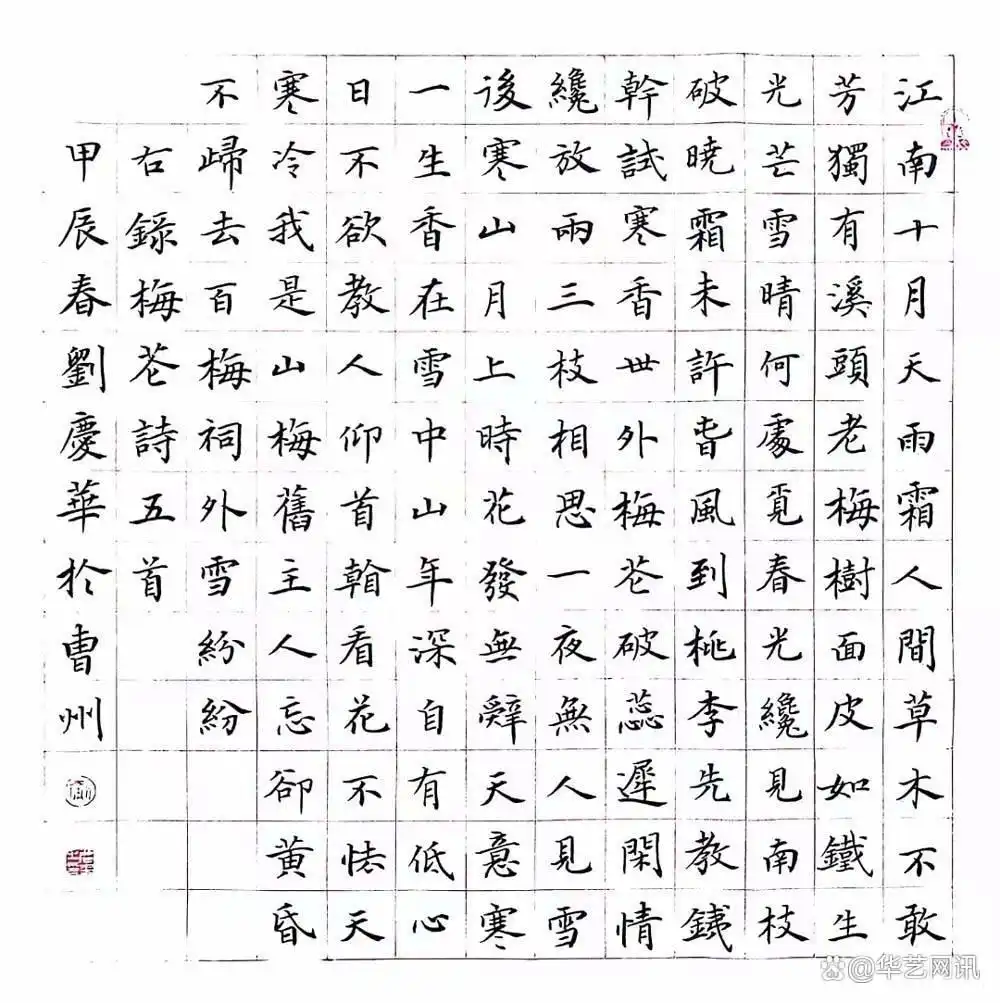 江南十月天雨霜人間草木不敢
芳獨有溪頭老梅樹面皮如鐵生
光芒雪晴何處覓春光纔見南枝
破曉霜未許旾風到桃李先教銕
幹試寒香世外梅芲破蕊遲閑情
纔放兩三枝相思一夜無人見雪
後寒山月上時花發無辭天意寒
一生香在雪中山年深自有低心
日不欲教人仰首翰看花不怯天
寒冷我是山梅舊主人忘卻黃昏
不歸去百梅祠外雪紛紛
右錄梅芲詩五首
甲辰春劉慶華於曹州
@华艺网讯